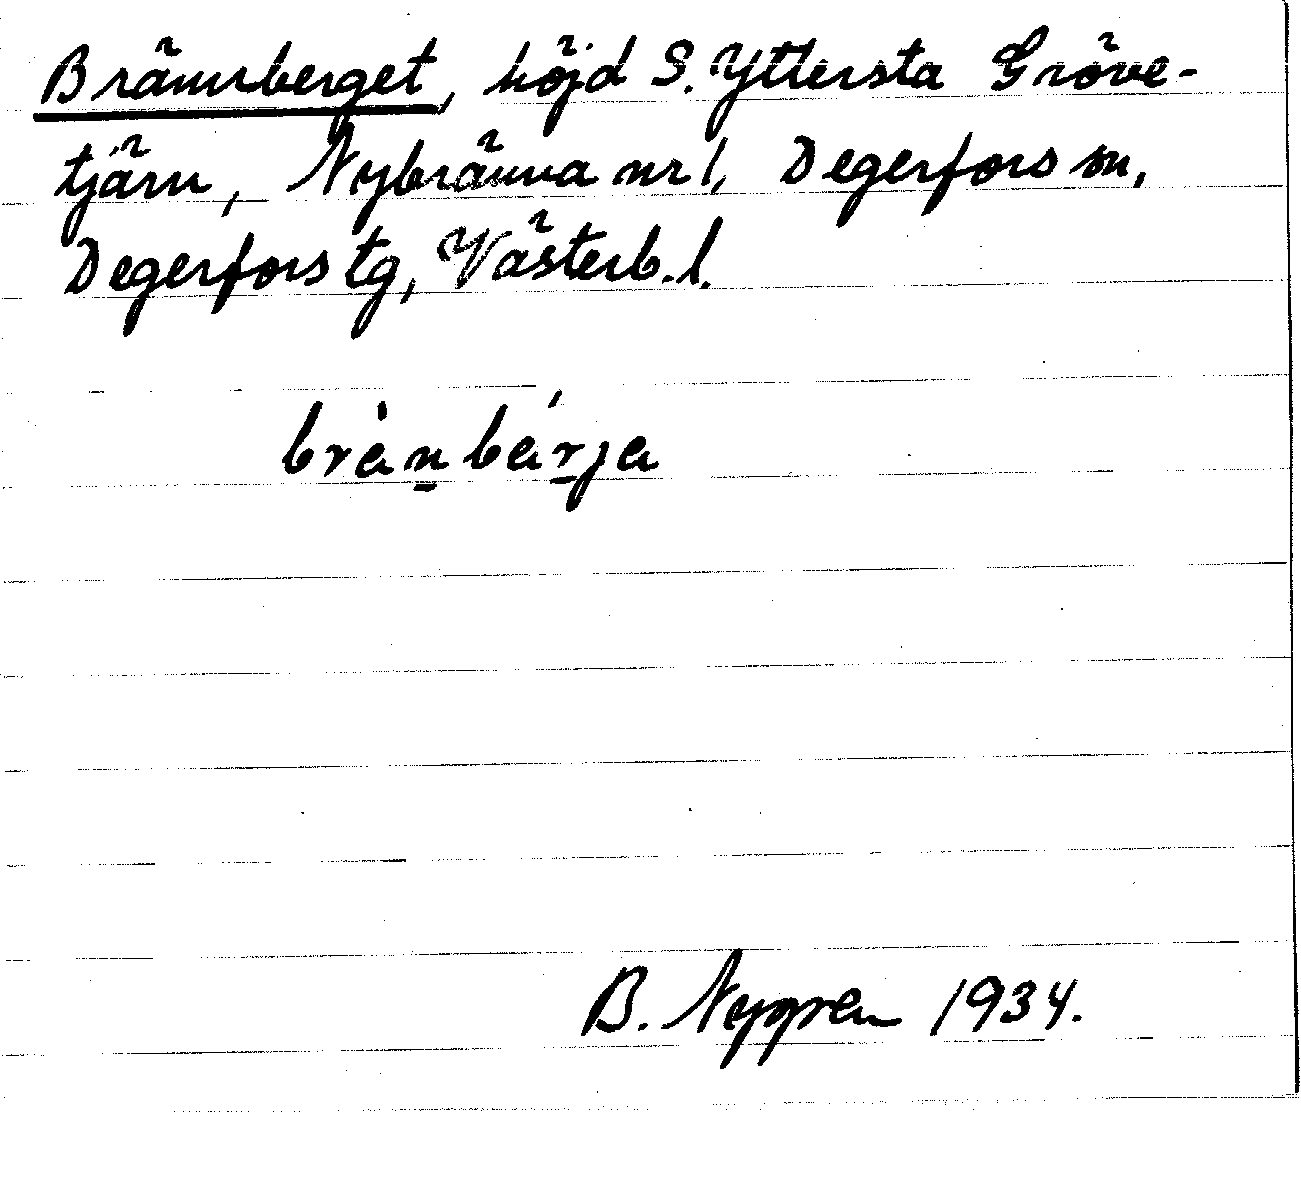 Brännberget, höjd S. Yttersta Gröve-
tjärn, Nybränna nr 1, Degerfors sn,
Degerfors tg, Västerb. l.
brànbárja
B. Nygren 1934.